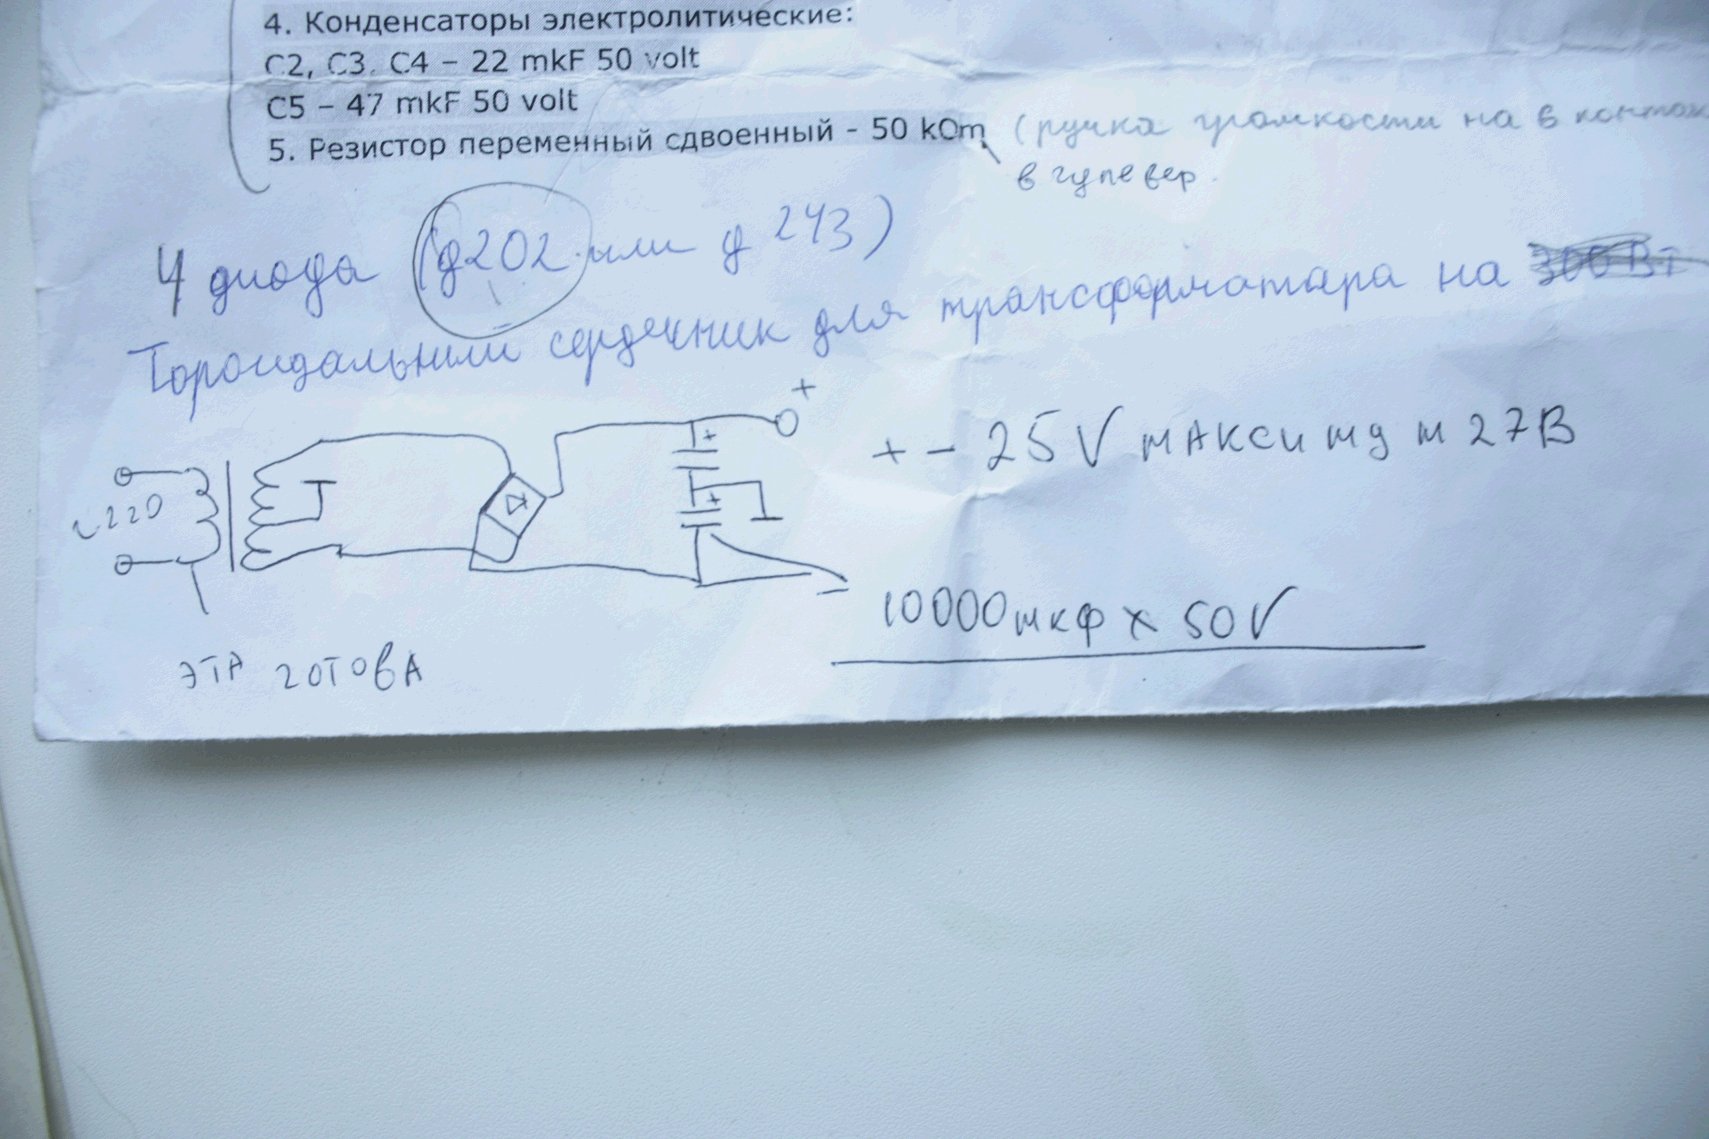 4. Конденсаторы электролитические:
C2, C3, C4 – 22 mkF 50 volt
C5 – 47 mkF 50 volt
5. Резистор переменный сдвоенный - 50 kOm (ручка громкости на 6
в гулевер.
4 диода (д202 или д 243)
Тороидальный сердечник для трансформатора на 300 Вт
+
~220
+
+
+ - 25V максимум 27В
-
10000мкф x 50V
эта готова